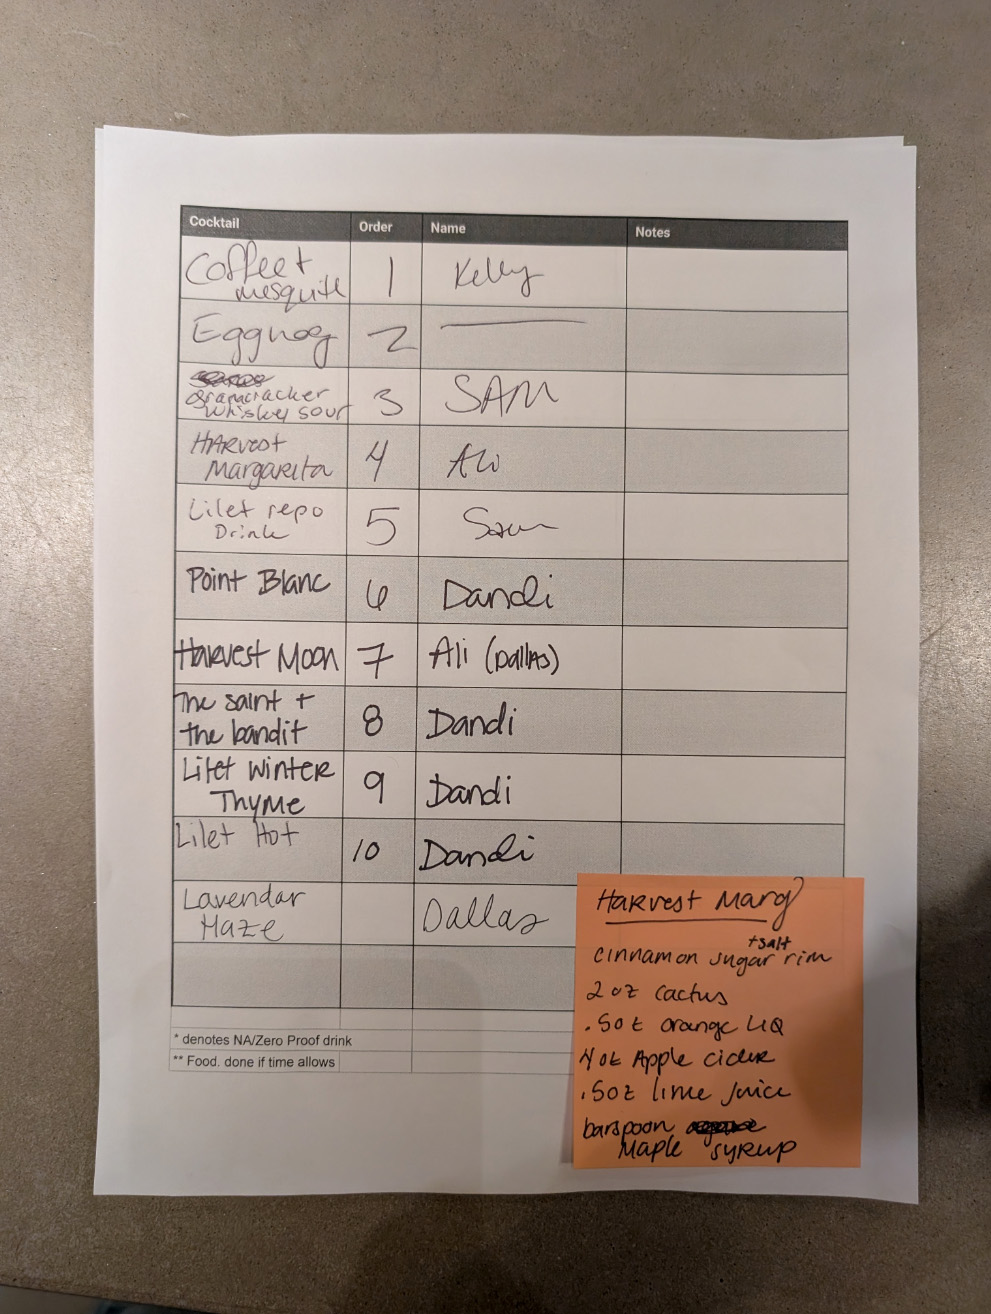 Cocktail Order Name Notes
Coffee +
mesquite 1 Kelly
Eggnog 2
Gramcracker
whiskey sour 3 SAM
HARvest
Margarita 4 Ali
Lilet repo
Drink 5 Sam
Point Blanc 6 Dandi
Harvest Moon 7 Ali (DallAs)
The saint +
the bandit 8 Dandi
Lilet Winter
Thyme 9 Dandi
Lilet Hot 10 Dandi
Lavendar
Haze Dallas
* denotes NA/Zero Proof drink
** Food. done if time allows
Harvest Marg
+ salt
cinnamon sugar rim
2 oz cactus
.5oz orange LIQ
4 oz Apple cider
.5oz lime juice
barspoon
Maple syrup